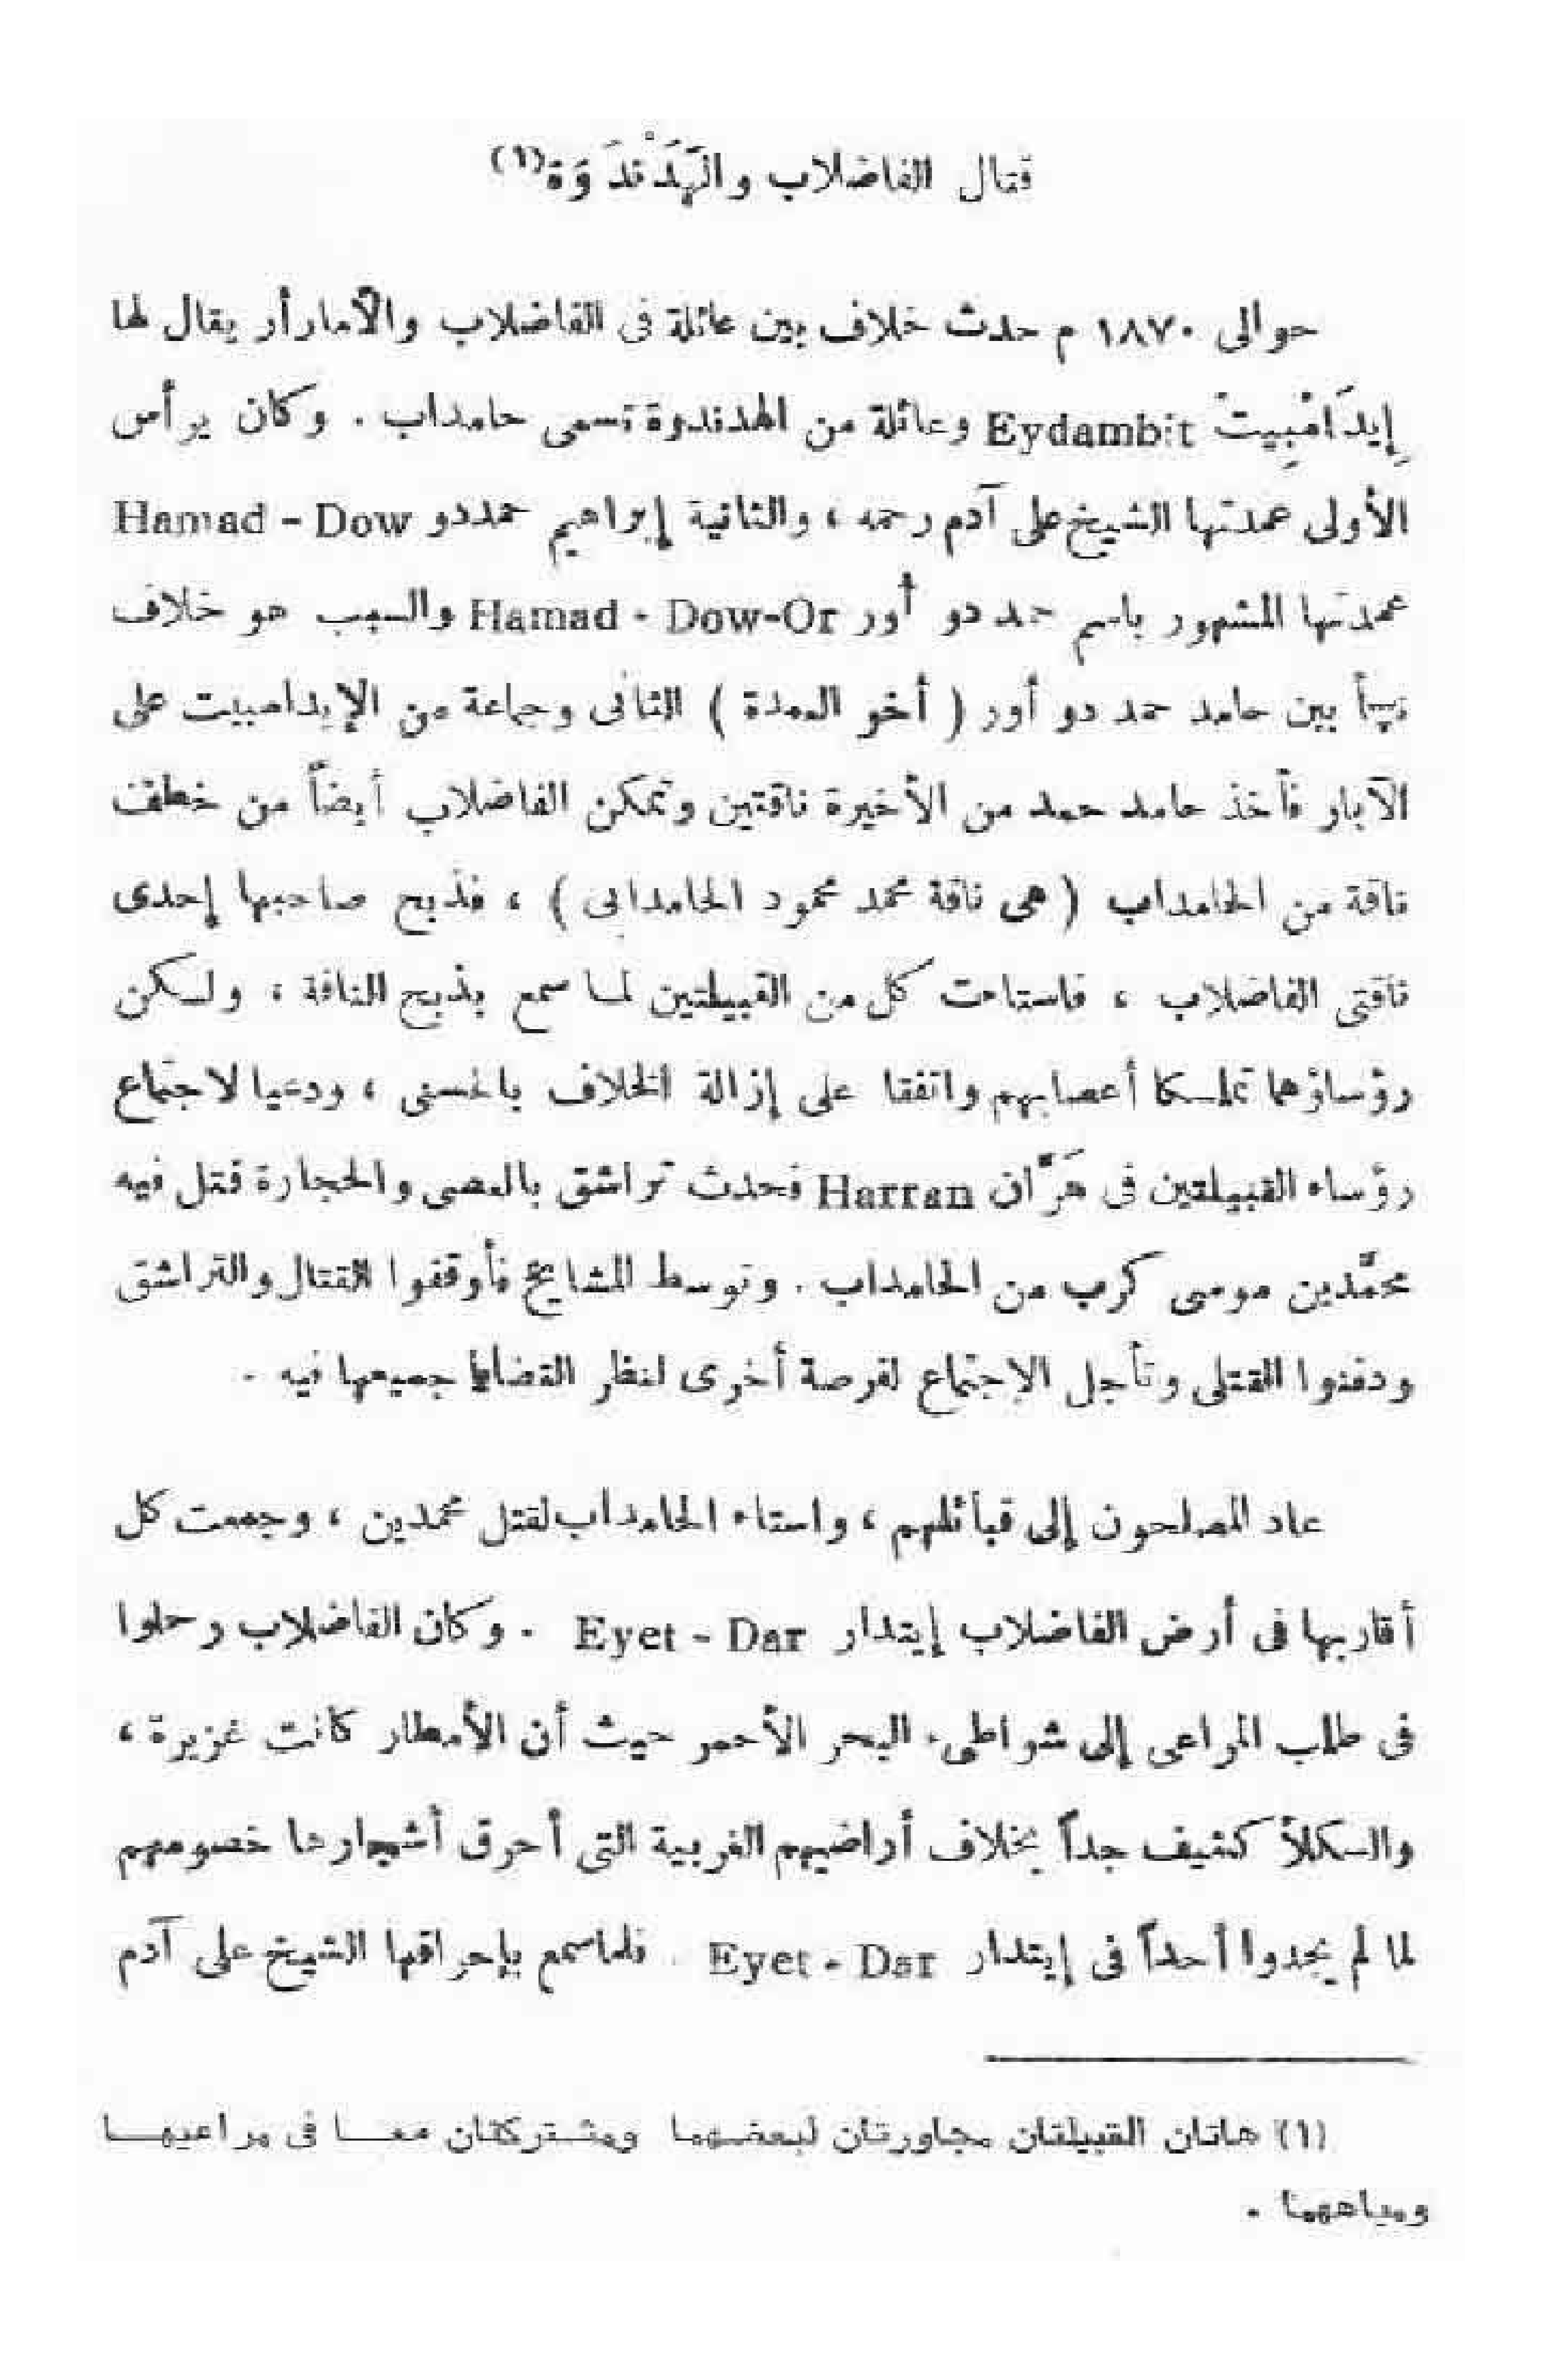 قتال الفاضلاب والهَدَنْدَوَة(١)
حوالى ١٨٧٠ م حدث خلاف بين عائلة فى الفاضلاب والأمارأر يقال لها
إِيدَامْبِيتْ Eydambit وعائلة من الهدندوة تسمى حامداب . وكان يرأس
الأولى عمدتها الشيخ على آدم رحمه ، والثانية إبراهيم حمددو Hamad - Dow
عمدتها المشهور باسم حمد دو أور Hamad - Dow-Or والسبب هو خلاف
نشأ بين حامد حمد دو أور ( أخو العمدة ) الثانى وجماعة من الإيدامبيت على
الآبار فأخذ حامد حمد من الأخيرة ناقتين وتمكن الفاضلاب أيضاً من خطف
ناقة من الحامداب ( هى ناقة محمد محمود الحامدابى ) ، فذبح صاحبها إحدى
ناقتى الفاضلاب ، فاستاءت كل من القبيلتين لما سمع بذبح الناقة ، ولكن
رؤساؤهما تملسكا أعصابهم واتفقا على إزالة الخلاف بالحسنى ، ودعيا لاجتماع
رؤساء القبيلتين فى هَرَّان Harran فحدث تراشق بالعصى والحجارة فقتل فيه
محمَّدين موسى كرب من الحامداب . وتوسط المشايخ فأوقفوا القتال والتراشق
ودفنوا القتلى وتأجل الاجتماع لفرصة أخرى لنظر القضايا جميعها فيه .
عاد المصلحون إلى قبائلهم ، واستاء الحامداب لقتل محمدين ، وجمعت كل
أقاربها فى أرض الفاضلاب إيتدار Eyet - Dar . وكان الفاضلاب رحلوا
فى طلب المراعى إلى شواطىء البحر الأحمر حيث أن الأمطار كانت غزيرة ،
والكلأ كثيف جداً بخلاف أراضيهم الغربية التى أحرق أشجارها خصومهم
لما لم يجدوا أحداً فى إيتدار Eyet - Dar . فلما سمع بإحراقها الشيخ على آدم
(١) هاتان القبيلتان مجاورتان لبعضهما ومشتركتان معا فى مراعيها
ومياههما .